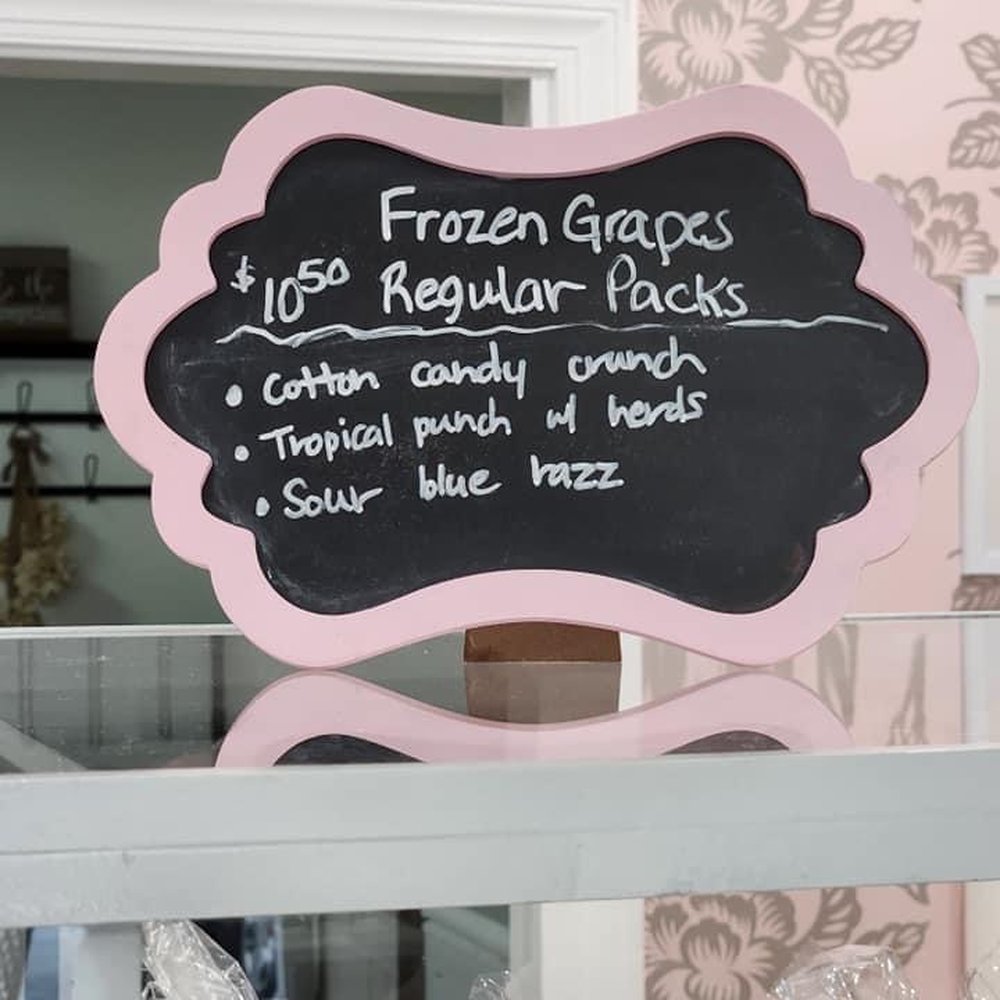 Frozen Grapes
$10.50 Regular Packs
• Cotton candy crunch
• Tropical punch w/ nerds
• Sour blue razz